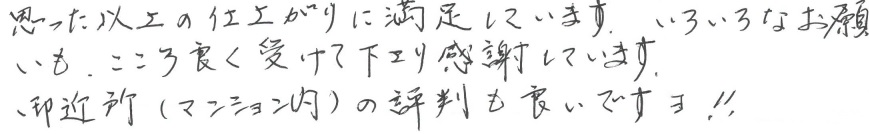 思った以上の仕上がりに満足しています。いろいろなお願
いも、こころ良く受けて下さり感謝しています。
御近所（マンション内）の評判も良いですヨ!!